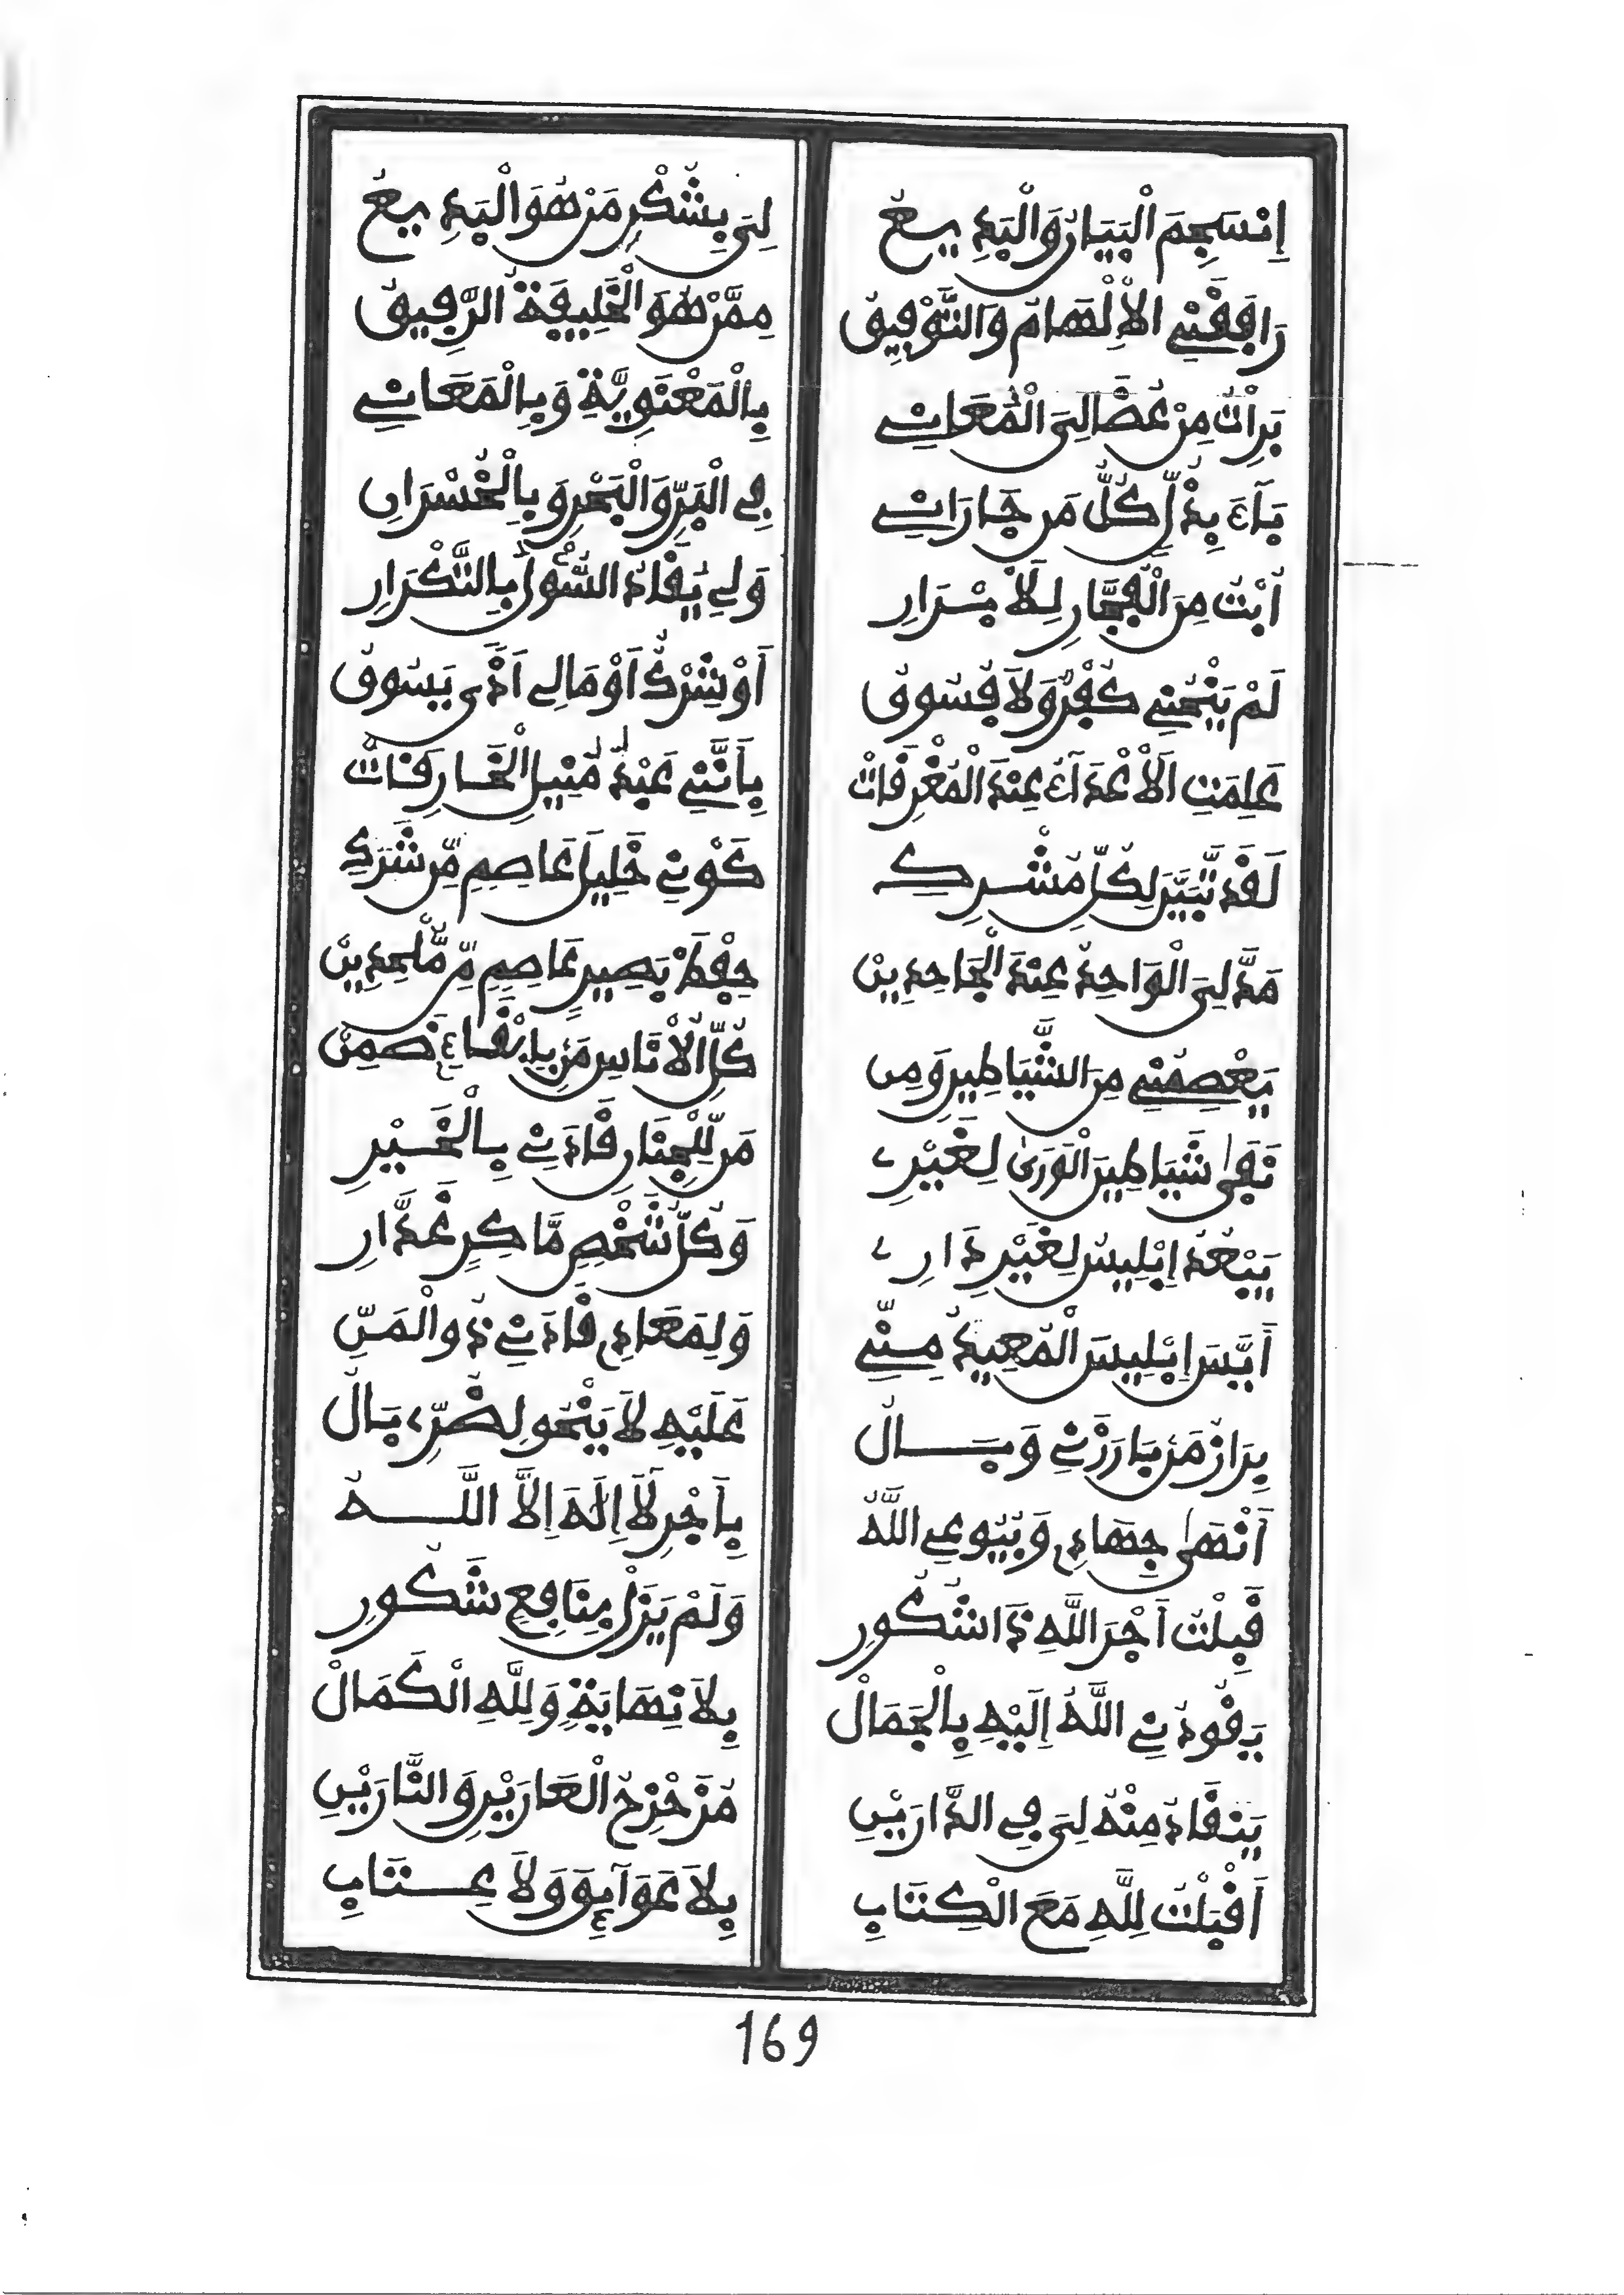 اِنْسَجَمَ الْبَيَانُ وَالْبَدِيعُ لِيَ بِشُكْرِ مَنْ هُوَ الْبَدِيعُ
رَافَقَنِي الْاِلْهَامُ وَالتَّوْفِيقُ مِمَّنْ هُوَ الْخَلِيفَةُ الرَّفِيقُ
بَرِأْتُ مِنْ عُضَالِيَ الْمُعَانِي بِالْمَعْنَوِيَّةِ وَبِالْمَعَانِي
بَآءَ بِذُلٍّ كُلُّ مَن جَارَانِي فِي الْبَرِّ وَالْبَحْرِ وَبِالْخُسْرَانِ
اُبْتُ مِنَ الْفُجَّارِ لِلْاَبْرَارِ وَلِي يَقُادُ السُّؤْلُ بِالتَّكْرَارِ
لَمْ يَنْحُنِي كُفْرٌ وَلَا فُسُوقُ أَوْ شِرْكٌ اَوْ مَا لِي اَذًى يَسُوقُ
عَلِمَتِ الْاَعْدَآءُ عِنْدَ الْمُغْرِقَاتْ بِأَنَّنِي عَبْدُ مُنِيلِ الْخَارِقَاتْ
لَقَدْ تَبَيَّنَ لِكُلِّ مُشْرِكِ كَوْنِي خَلِيلَ عَاصِمٍ مِّن شَرَكِ
مَدَّ لِيَ الْوَاحِدُ عِنْدَ الْجَاحِدِينْ حِفْظَ بَصِيرٍ عَاصِمٍ مِّن مُّلْحِدِينْ
يَعْصِمُنِي مِنَ الشَّيَاطِينِ وَمِن كُلِّ الْاُنَاسِ مَنْ بِإِبْقَاءٍ ضَمِنْ
نَفَى شَيَاطِينَ الْوَرَى لِغَيْرِي مَن لِّلْجِنَانِ قَادَنِي بِالْخَيْرِ
يَبْعُدُ اِبْلِيسُ لِغَيْرِ دَارِي وَكُلُّ شَخْصٍ مَّاكِرٍ غَدَّارِ
أَيَّسَ اِبْلِيسَ الْمُعِيدُ مِنِّي وَلِمَعَادِي قَادَنِي ذُو الْمَنِّ
بِرَازُ مَنْ بَارَزَنِي وَبَالُ عَلَيْهِ لَا يَنْحُو لِضُرِّي بَالُ
اَنْهَى جِهَادِي وَبُيُوعِي اللَّهُ بِأَجْرِ لَآ اِلَهَ اِلَّا اللَّهُ
قَبِلْتُ اَجْرَ اللَّهِ ذَا شُكُورِ وَلَمْ يَزَلْ بِنَافِعٍ شَكُورِ
يَقُودُنِي اللَّهُ اِلَيْهِ بِالْجَمَالْ بِلَا نِهَايَةٍ وَلِلَّهِ الْكَمَالْ
يَنْقَادُ مِنْهُ لِيَ فِي الدَّارَيْنِ مُزَحْزِحُ الْعَارَيْنِ وَالنَّارَيْنِ
اَقْبَلْتُ لِلَّهِ مَعَ الْكِتَابِ بِلَا عَوَآئِقٍ وَلَا عِتَابِ
169